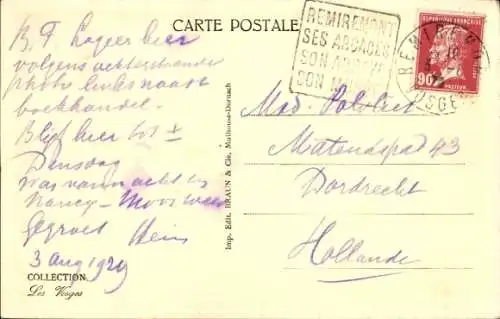 CARTE POSTALE
REMIREMONT
SES ARCADES
SON
SON
REPUBLIQUE FRANÇAISE
90
PASTEUR
REMIREMONT
VOSGES
B. F. Logeer hier
volgens achterstaande
photo links naast
boekhandel.
Blijf hier tot ±
Densdag
Was vannacht in
Nancy - Mooi weer
Gegroet Hein
3 aug 1929
COLLECTION
Les Vosges
Imp. Edit. BRAUN & Cie, Mulhouse-Dornach
Mad.
Matenaspad 43
Dordrecht
Hollande